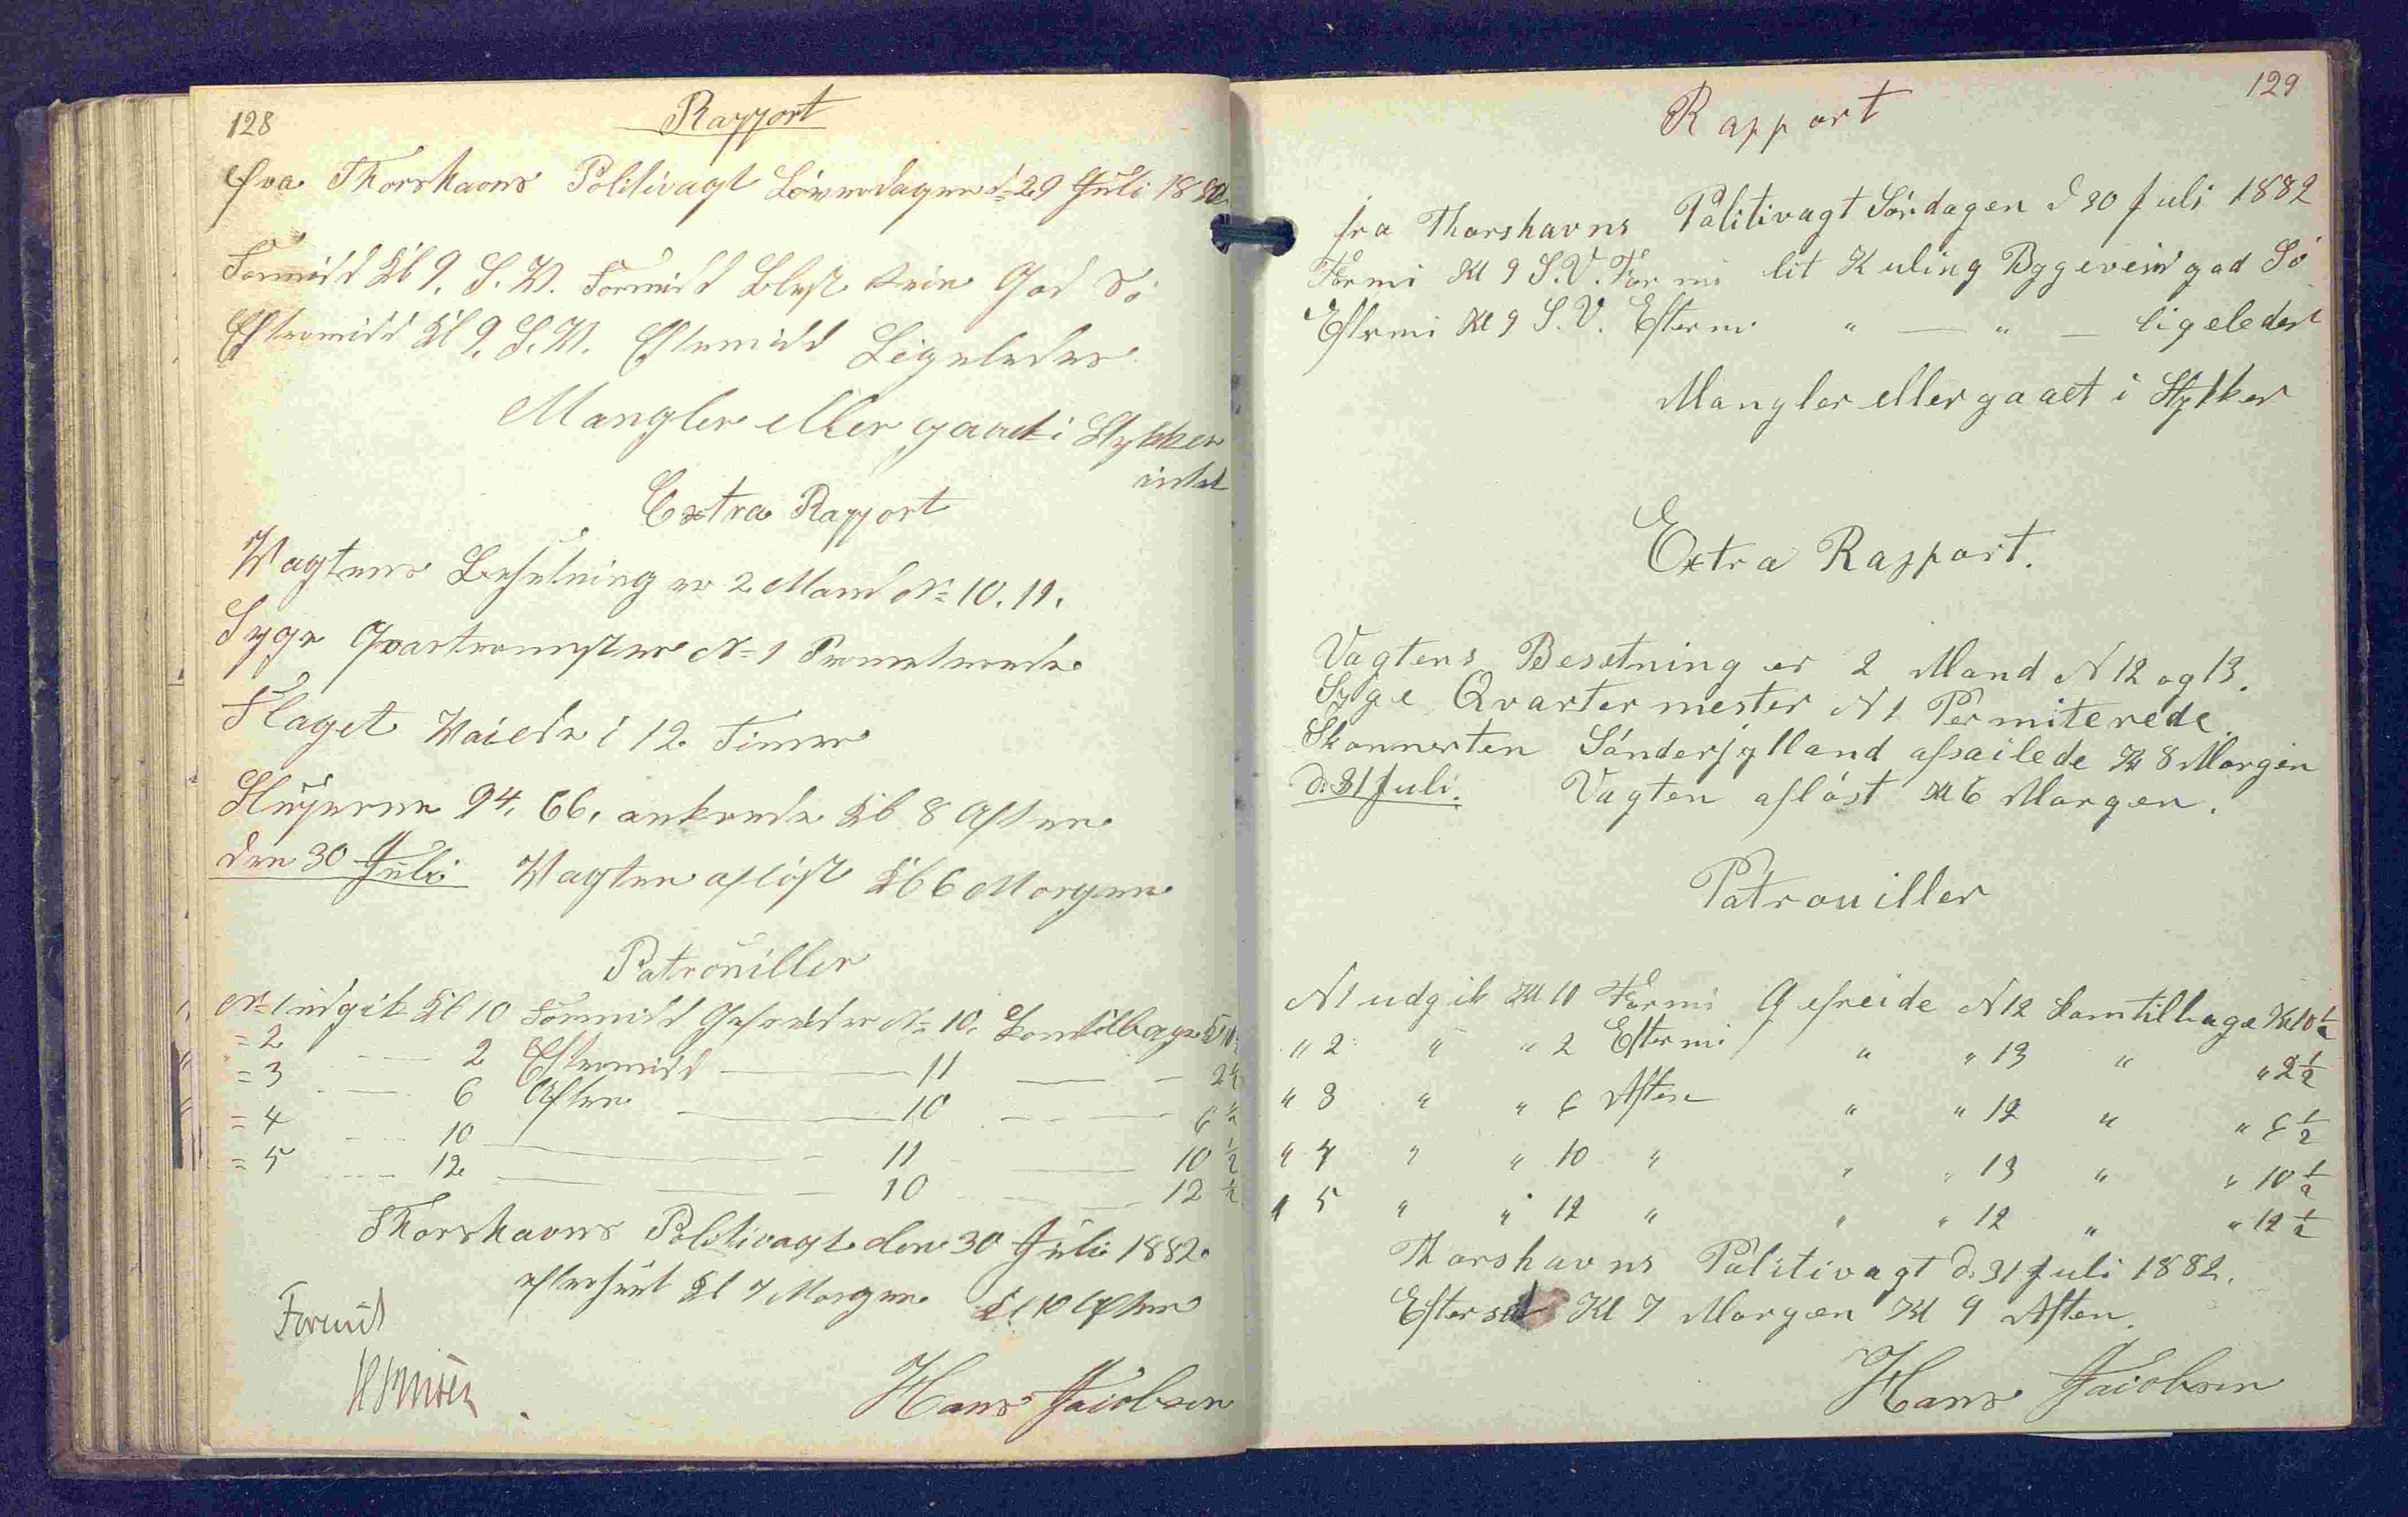 128
Rapport
fra Thorshavns Politivagt Løverdagen d= 29 Juli 1882
Formidd Kl 9. S. V. Formidd Blæst Rein God Sø
Eftermidd Kl 9. S. V. Eftermidd Ligeledes
Mangler eller gaaet i Stykker
intet
Extra Rapport
Vagtens Besetning er 2 Mand N= 10. 11.
Syge Qvartermester N= 1 Permeterede
Flaget Vaiede i 12 Timer
Slupperne 94. 66. ankrede Kl 8 Aften
den 30 Juli Vagten afløst Kl 6 Morgen
Patrouiller
N= 1 udgik Kl 10 Formidd Gefreider N= 10. Kom tilbage Kl 10½
= 2 — 2 Eftermidd — 11 — 2½
= 3 — 6 Aften — 10 — 6½
= 4 — 10 — 11 — 10½
= 5 — 12 — 10 — 12½
Thorshavns Politivagt den 30 Juli 1882.
efterseet Kl 7 Morgen Kl 10 Aften
Hans Jacobsen
129
Rapport
fra Thorshavns Politivagt Søndagen d 30 Juli 1882
Formi Kl 9 S. V. Formi lit Kuling Bygevein god Sø
Eftermi Kl 9 S. V. Eftermi " — " — ligeledest
Mangler eller gaaet i Stykker
Extra Rapport.
Vagtens Besetning er 2 Mand N 12 og 13.
Syge Qvartermester N 1 Permiterede
Skonnerten Sønderjylland afsailede Kl 8 Morgen
d. 31 Juli. Vagten afløst Kl 6 Morgen.
Patrouiller
N 1 udgik Kl 10 Formi Gefreide N 12 kom tilbage Kl 10½
" 2 " " 2 Eftermi " " 13 " " 2½
" 3 " " 6 Aften " " 12 " " 6½
" 4 " " 10 " " " 13 " " 10½
" 5 " " 12 " " " 12 " " 12½
Thorshavns Politivagt d. 31 Juli 1882.
Efterset Kl 7 Morgen Kl 9 Aften.
Hans Jacobsen